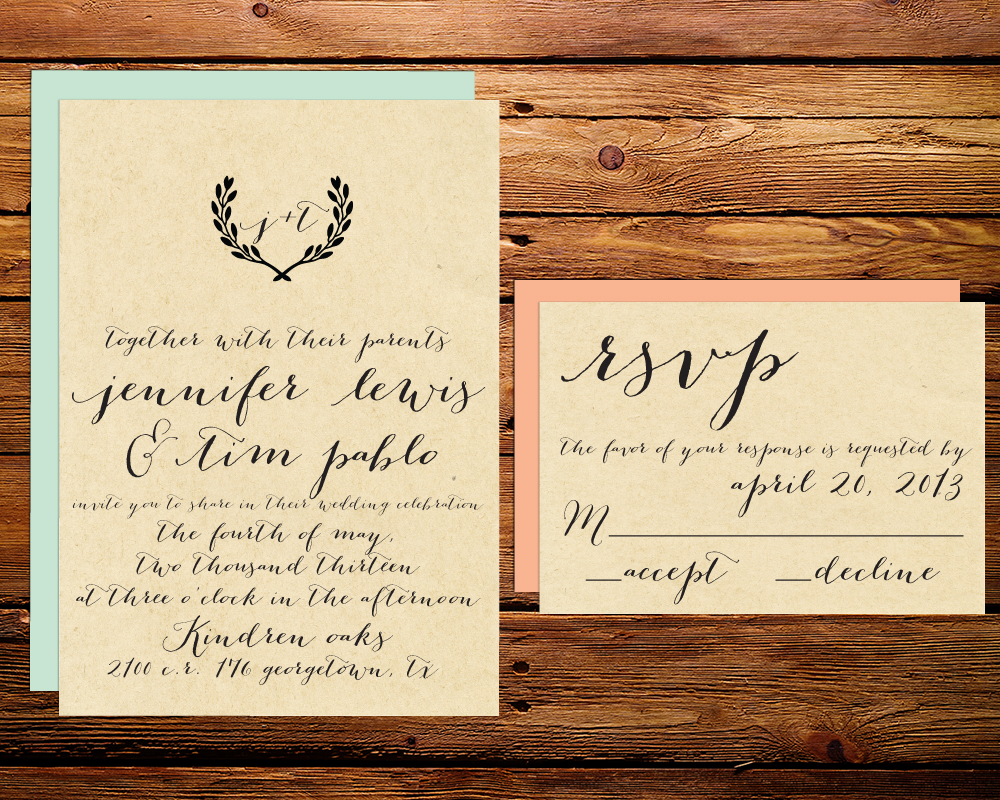 j+t
together with their parents
jennifer lewis
& tim pablo
invite you to share in their wedding celebration
the fourth of may,
two thousand thirteen
at three o'clock in the afternoon
Kindren oaks
2100 c.r. 176 georgetown, tx
rsvp
the favor of your response is requested by
april 20, 2013
M
accept decline